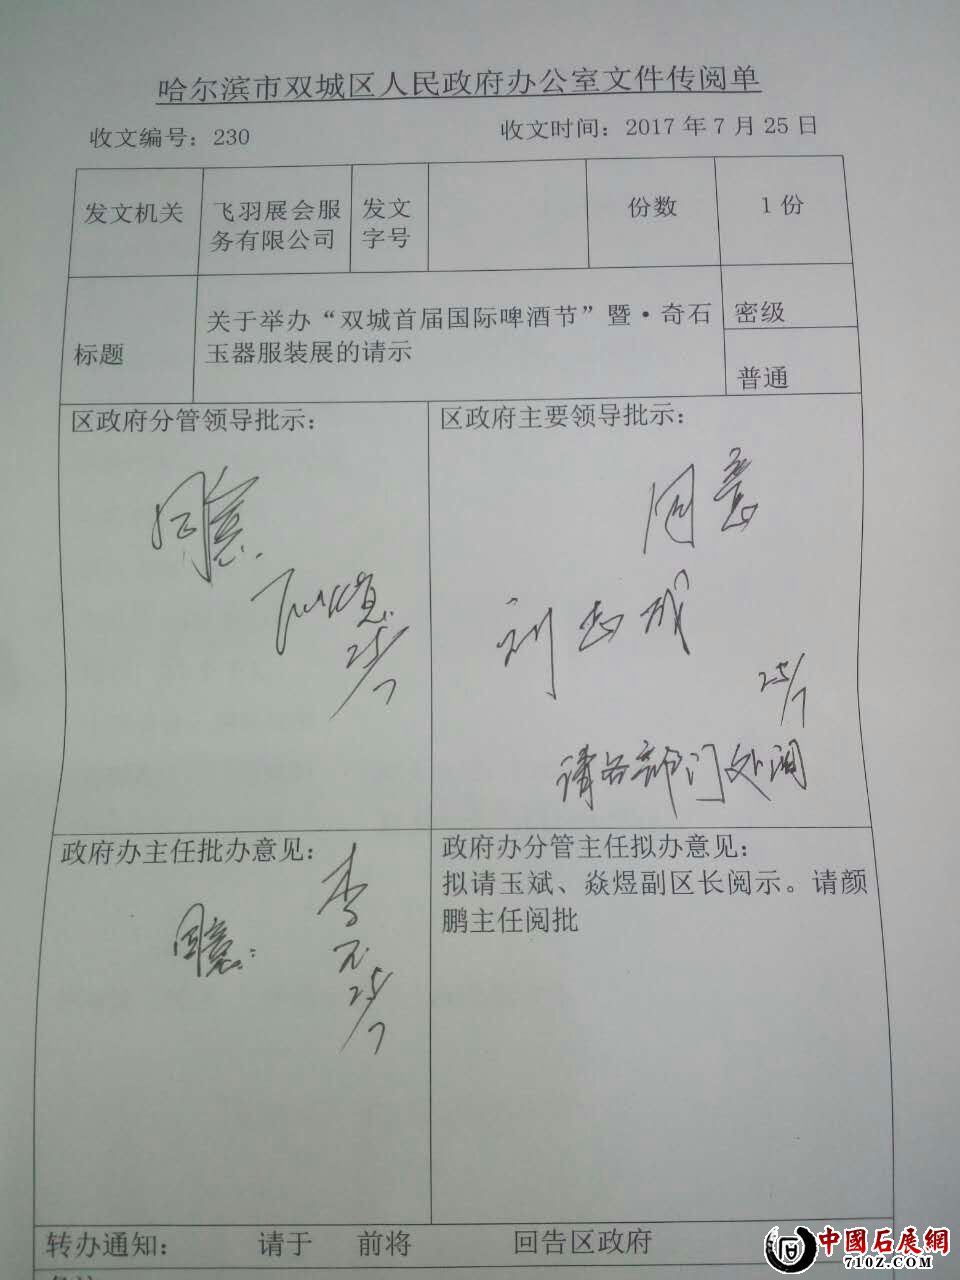 哈尔滨市双城区人民政府办公室文件传阅单
收文编号：230
收文时间：2017年7月25日
发文机关
飞羽展会服
务有限公司
发文
字号
份数
1份
标题
关于举办“双城首届国际啤酒节”暨·奇石
玉器服装展的请示
密级
普通
区政府分管领导批示：
同意
25/7
区政府主要领导批示：
同意
刘志成
25/7
请各部门处阅
政府办主任批办意见：
同意
李
25/7
政府办分管主任拟办意见：
拟请玉斌、焱煜副区长阅示。请颜
鹏主任阅批
转办通知： 请于 前将 回告区政府
中國石展網
710Z.COM